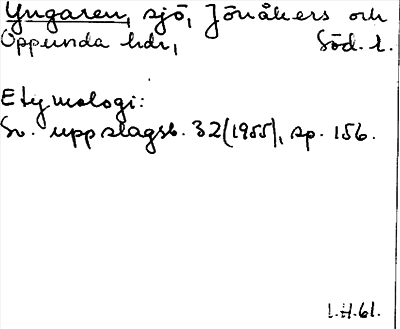 Yngaren, sjö, Jönåkers och
Oppunda hdr, Söd. l.
Etymologi:
Sv. uppslagsb. 32(1955), sp. 156.
I.H.61.